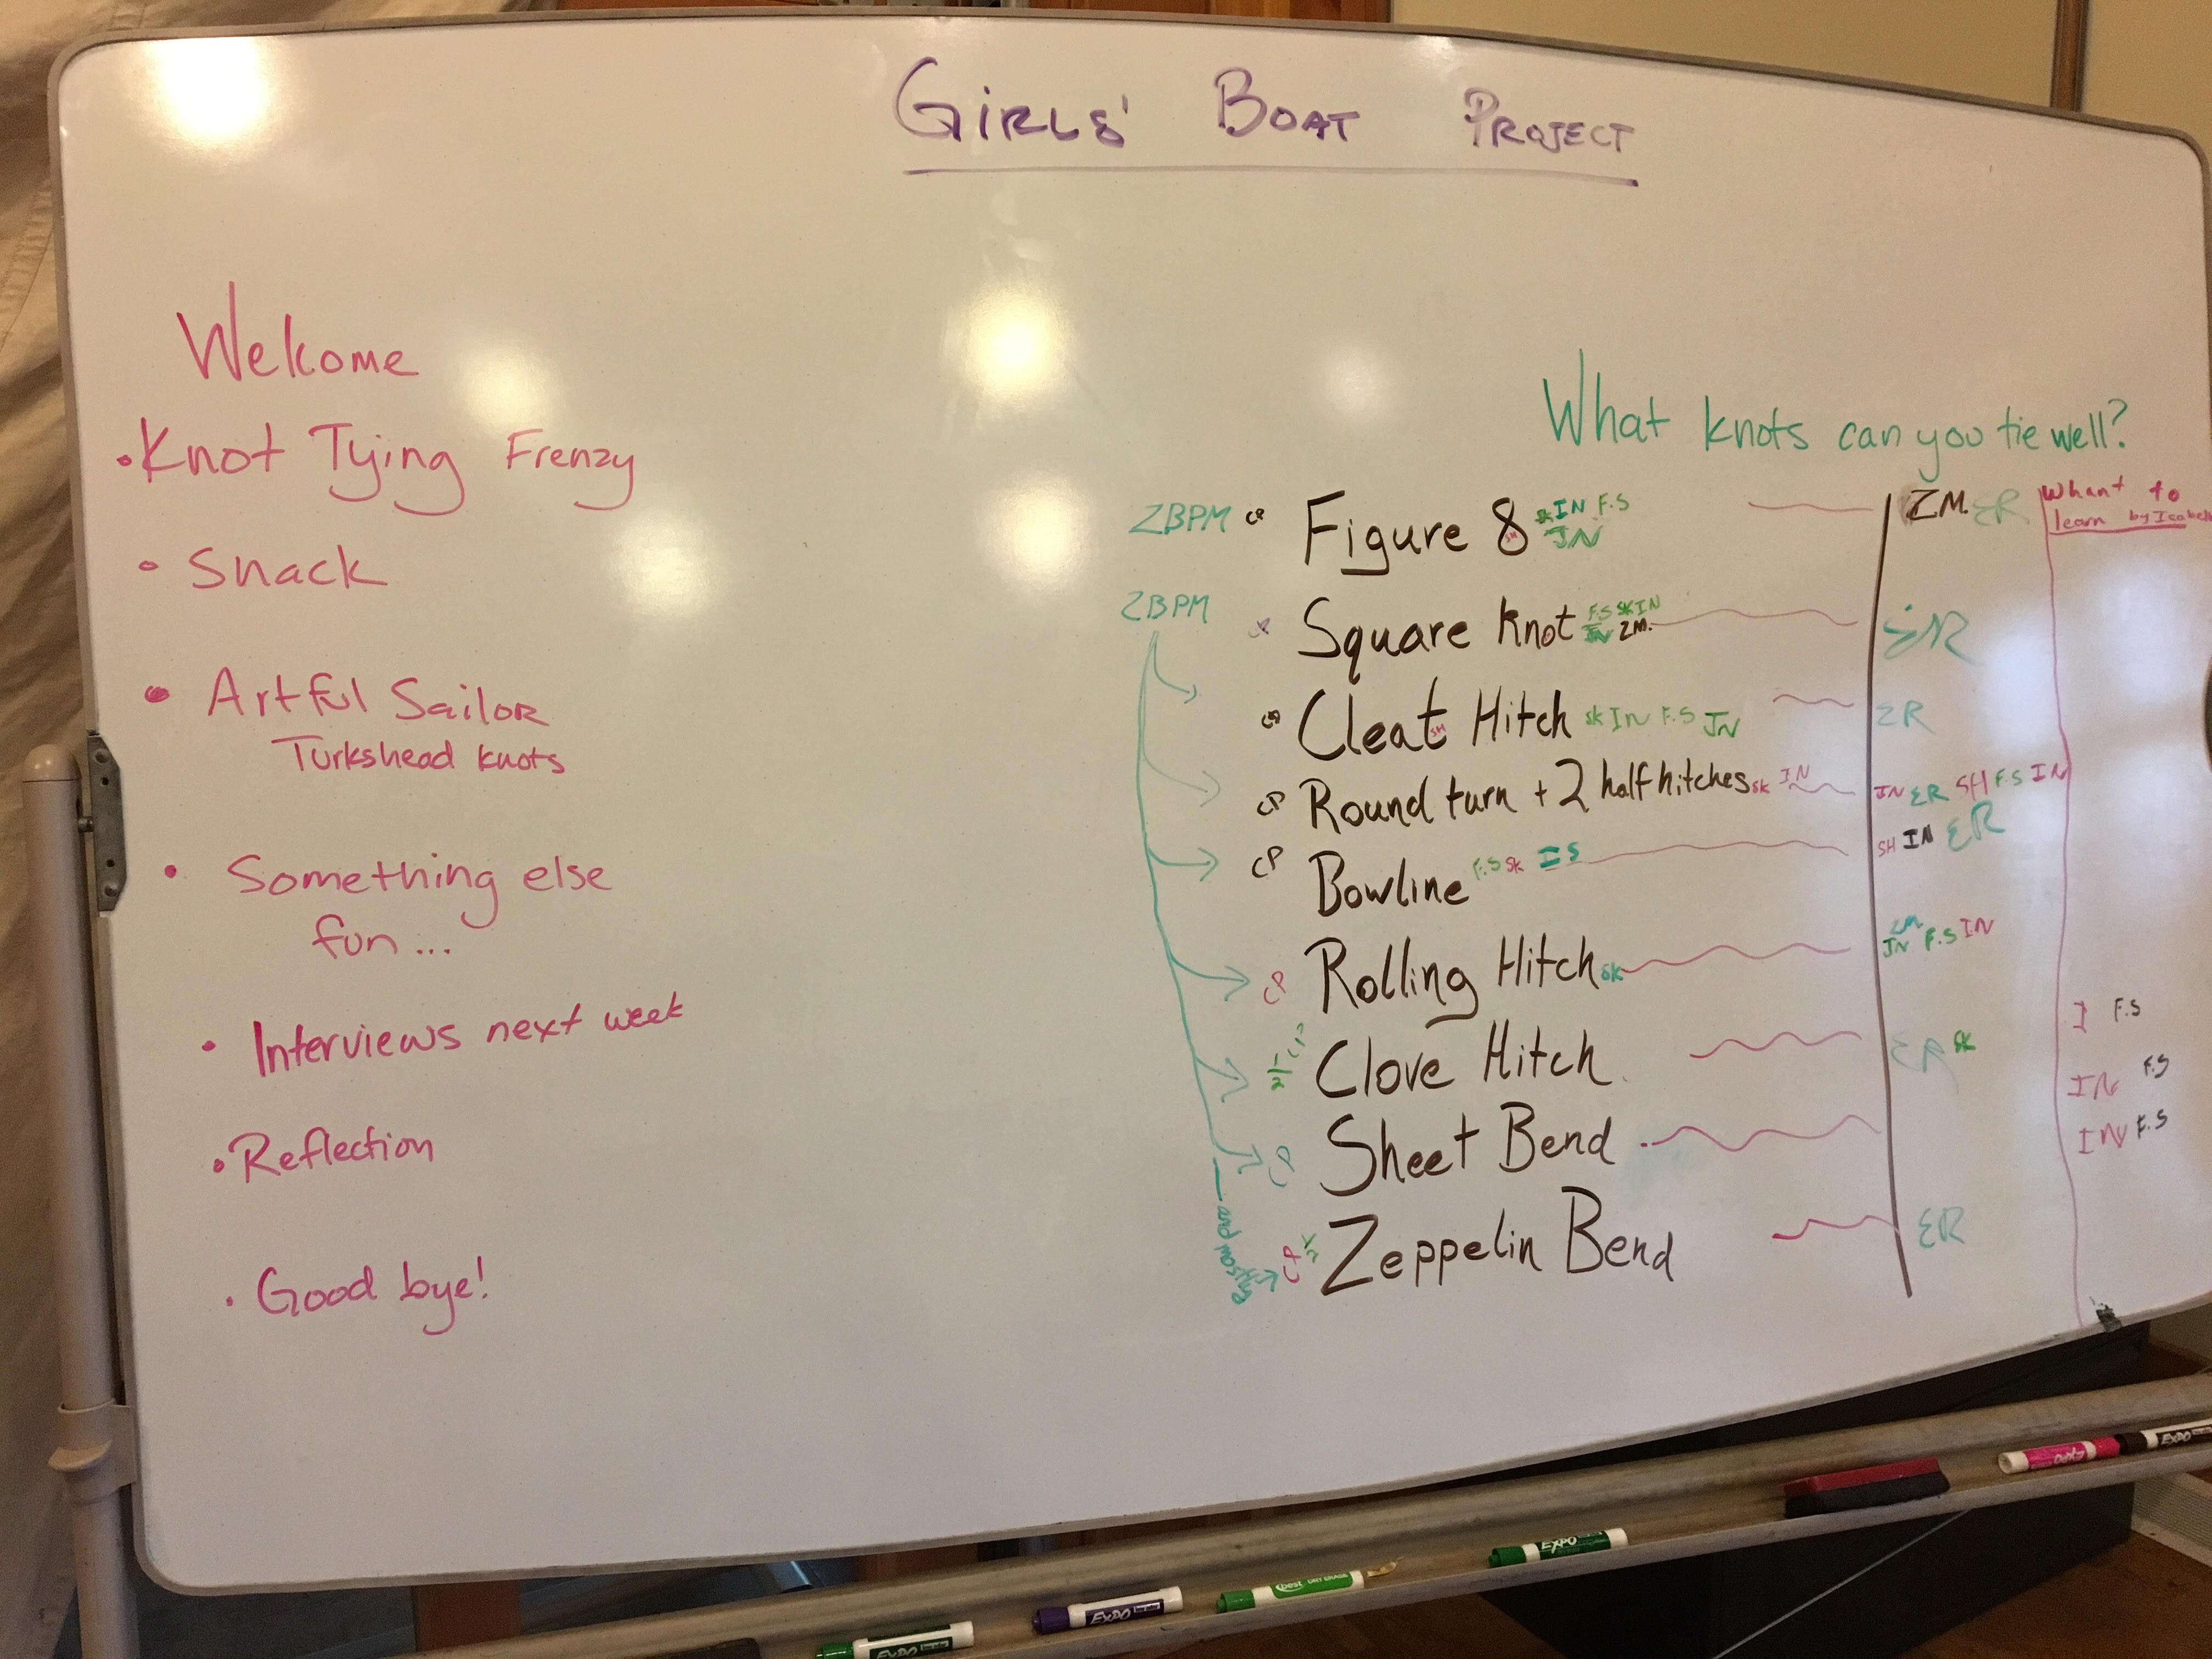 GIRLS' BOAT PROJECT
Welcome
• Knot Tying Frenzy
• Snack
• Artful Sailor
Turkshead knots
• Something else
fun...
• Interviews next week
• Reflection
• Good bye!
What knots can you tie well?
Whant to
learn by
ZBPM CP Figure 8 SH SK IN F.S ZM. ER
JN
ZBPM Square knot F.S SK IN ER
JN ZM.
Cleat Hitch SH SK IN F.S JN ER
CP Round turn + 2 half hitches SK IN IN ER SH F.S IN
CP Bowline F.S SK IS SH IN ER
CP Rolling Hitch SK ZM
JN F.S IN
I F.S
1/2 CP Clove Hitch ER SK
IN F.S
CP Sheet Bend
IN F.S
CP 1/2 Zeppelin Bend ER
and
EXPO
EXPO
best DRY ERASE
EXPO
EXPO